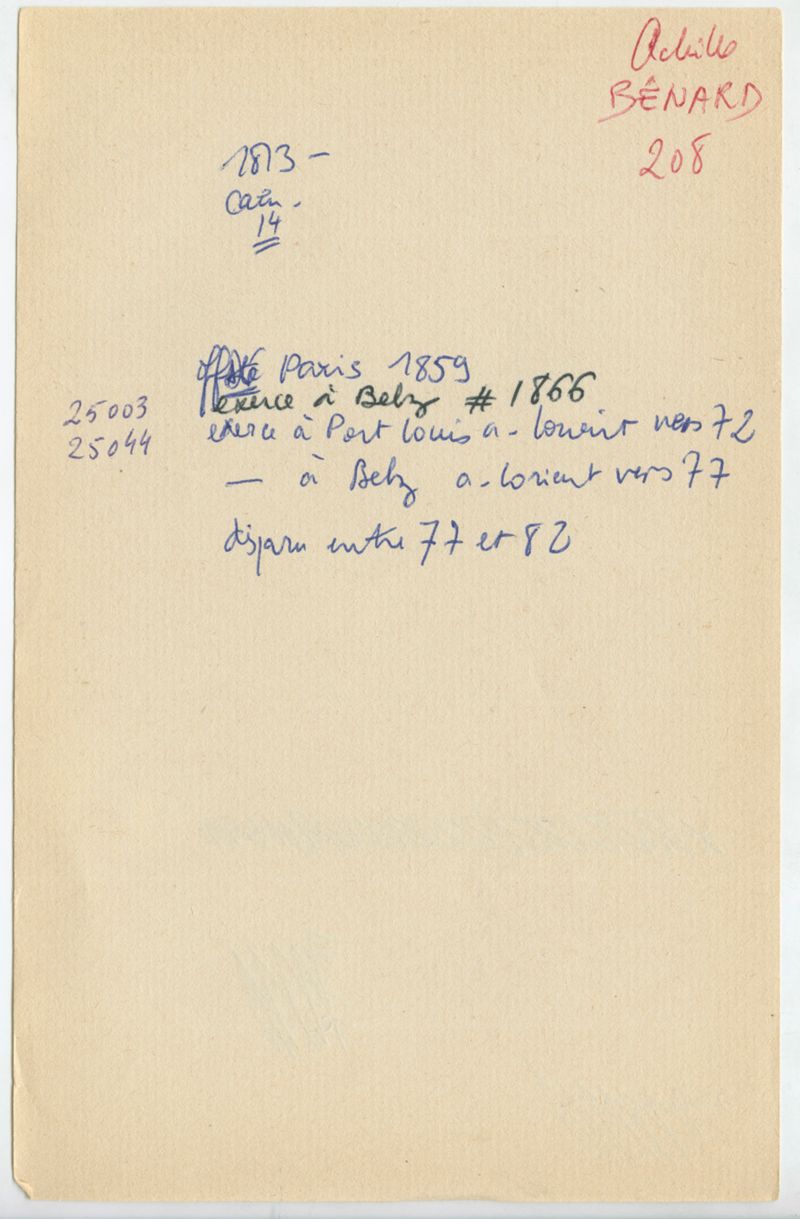 Achille
BÊNARD
208
1813 -
Caen.
14
Paris 1859
exerce à Belz # 1866
25003
exerce à Port Louis a. Lorient vers 72
25044
— à Belz a. Lorient vers 77
disparu entre 77 et 82